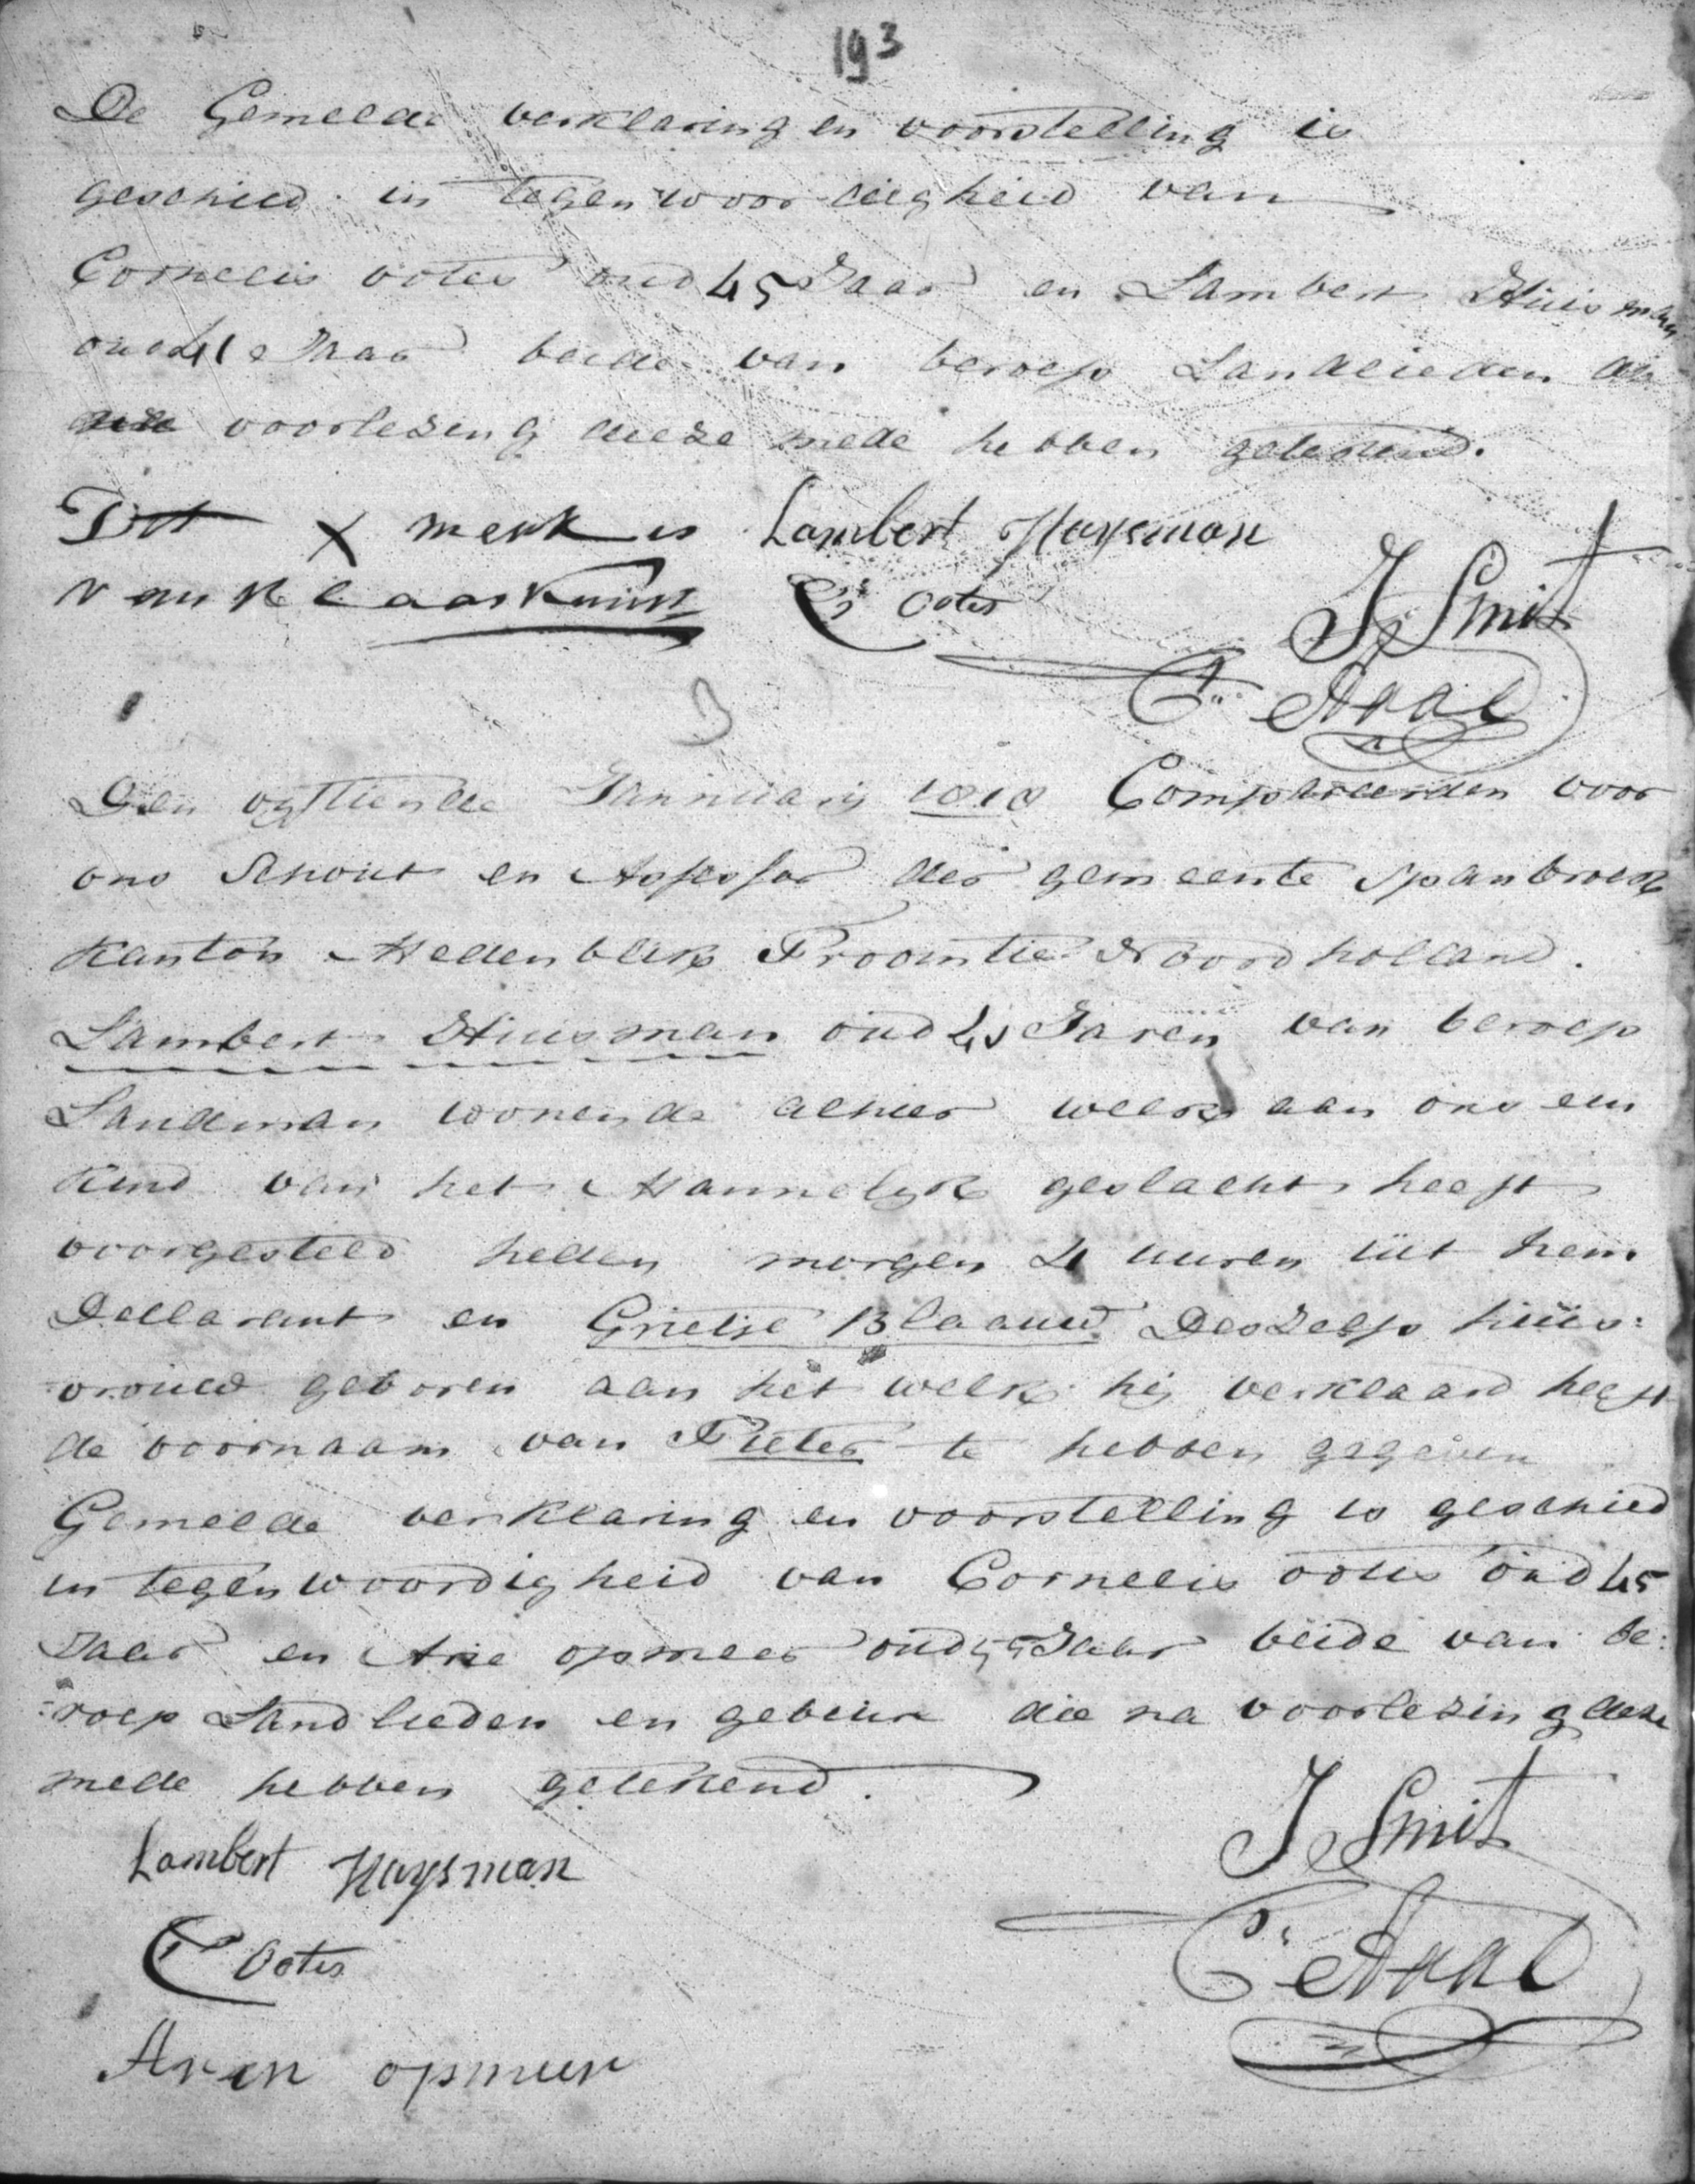 193
De Gemelde verklaring en voorstelling is
geschied in tegenwoordigheid van
Cornelis ootes oud 45 Jaar en Lambert Huisman
oud 41 Jaar beide van beroep Landlieden die
voorlezing deeze mede hebben getekend.
Dit X merk is Lambert Huysman
van Klaas Kunst Cs Ootes J Smit
C. Araal
3
Den vyftiende Jannuarij 1818 Compareerden voor
ons Schout en Assessor der gemeente Spanbroek
Kanton Medenblik Provintie Noordholland.
Lambert Huisman oud 41 Jaren van beroep
Landman wonende alhier welke aan ons een
kind van het Mannelyk geslacht heeft
voorgesteld heden morgen 4 uuren uit hem
Declarant en Grietje Blaauw Deszelfs huis:
vrouw geboren aan het welk hij verklaard heeft
de voornaam van Pieter te hebben gegeven
Gemelde verklaring en voorstelling is geschied
in tegenwoordigheid van Cornelis ootes oud 45
Jaar en Arie opmeer oud Jaar beide van be:
:roep Landlieden en gebeure die na voorlezing deze
mede hebben getekend.
J Smit
Lambert Huysman
C. Araal
C Ootes
Aren opmeer